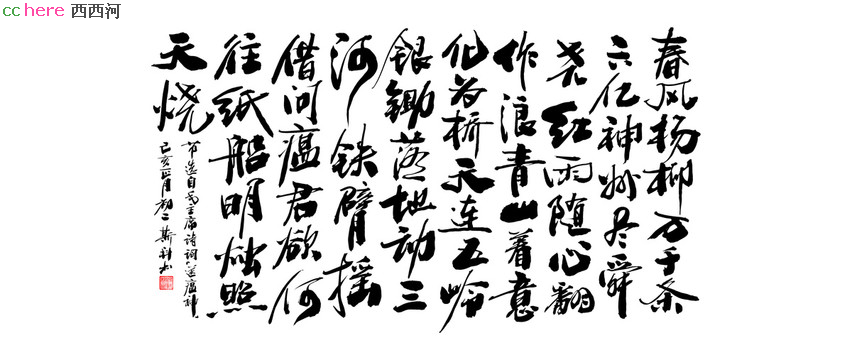 cchere 西西河
春风杨柳万千条
六亿神州尽舜
尧红雨随心翻
作浪青山着意
化为桥天连五岭
银锄落地动三
河铁臂摇
借问瘟君欲何
往纸船明烛照
天烧
节选自毛主席诗词送瘟神
己亥正月初二